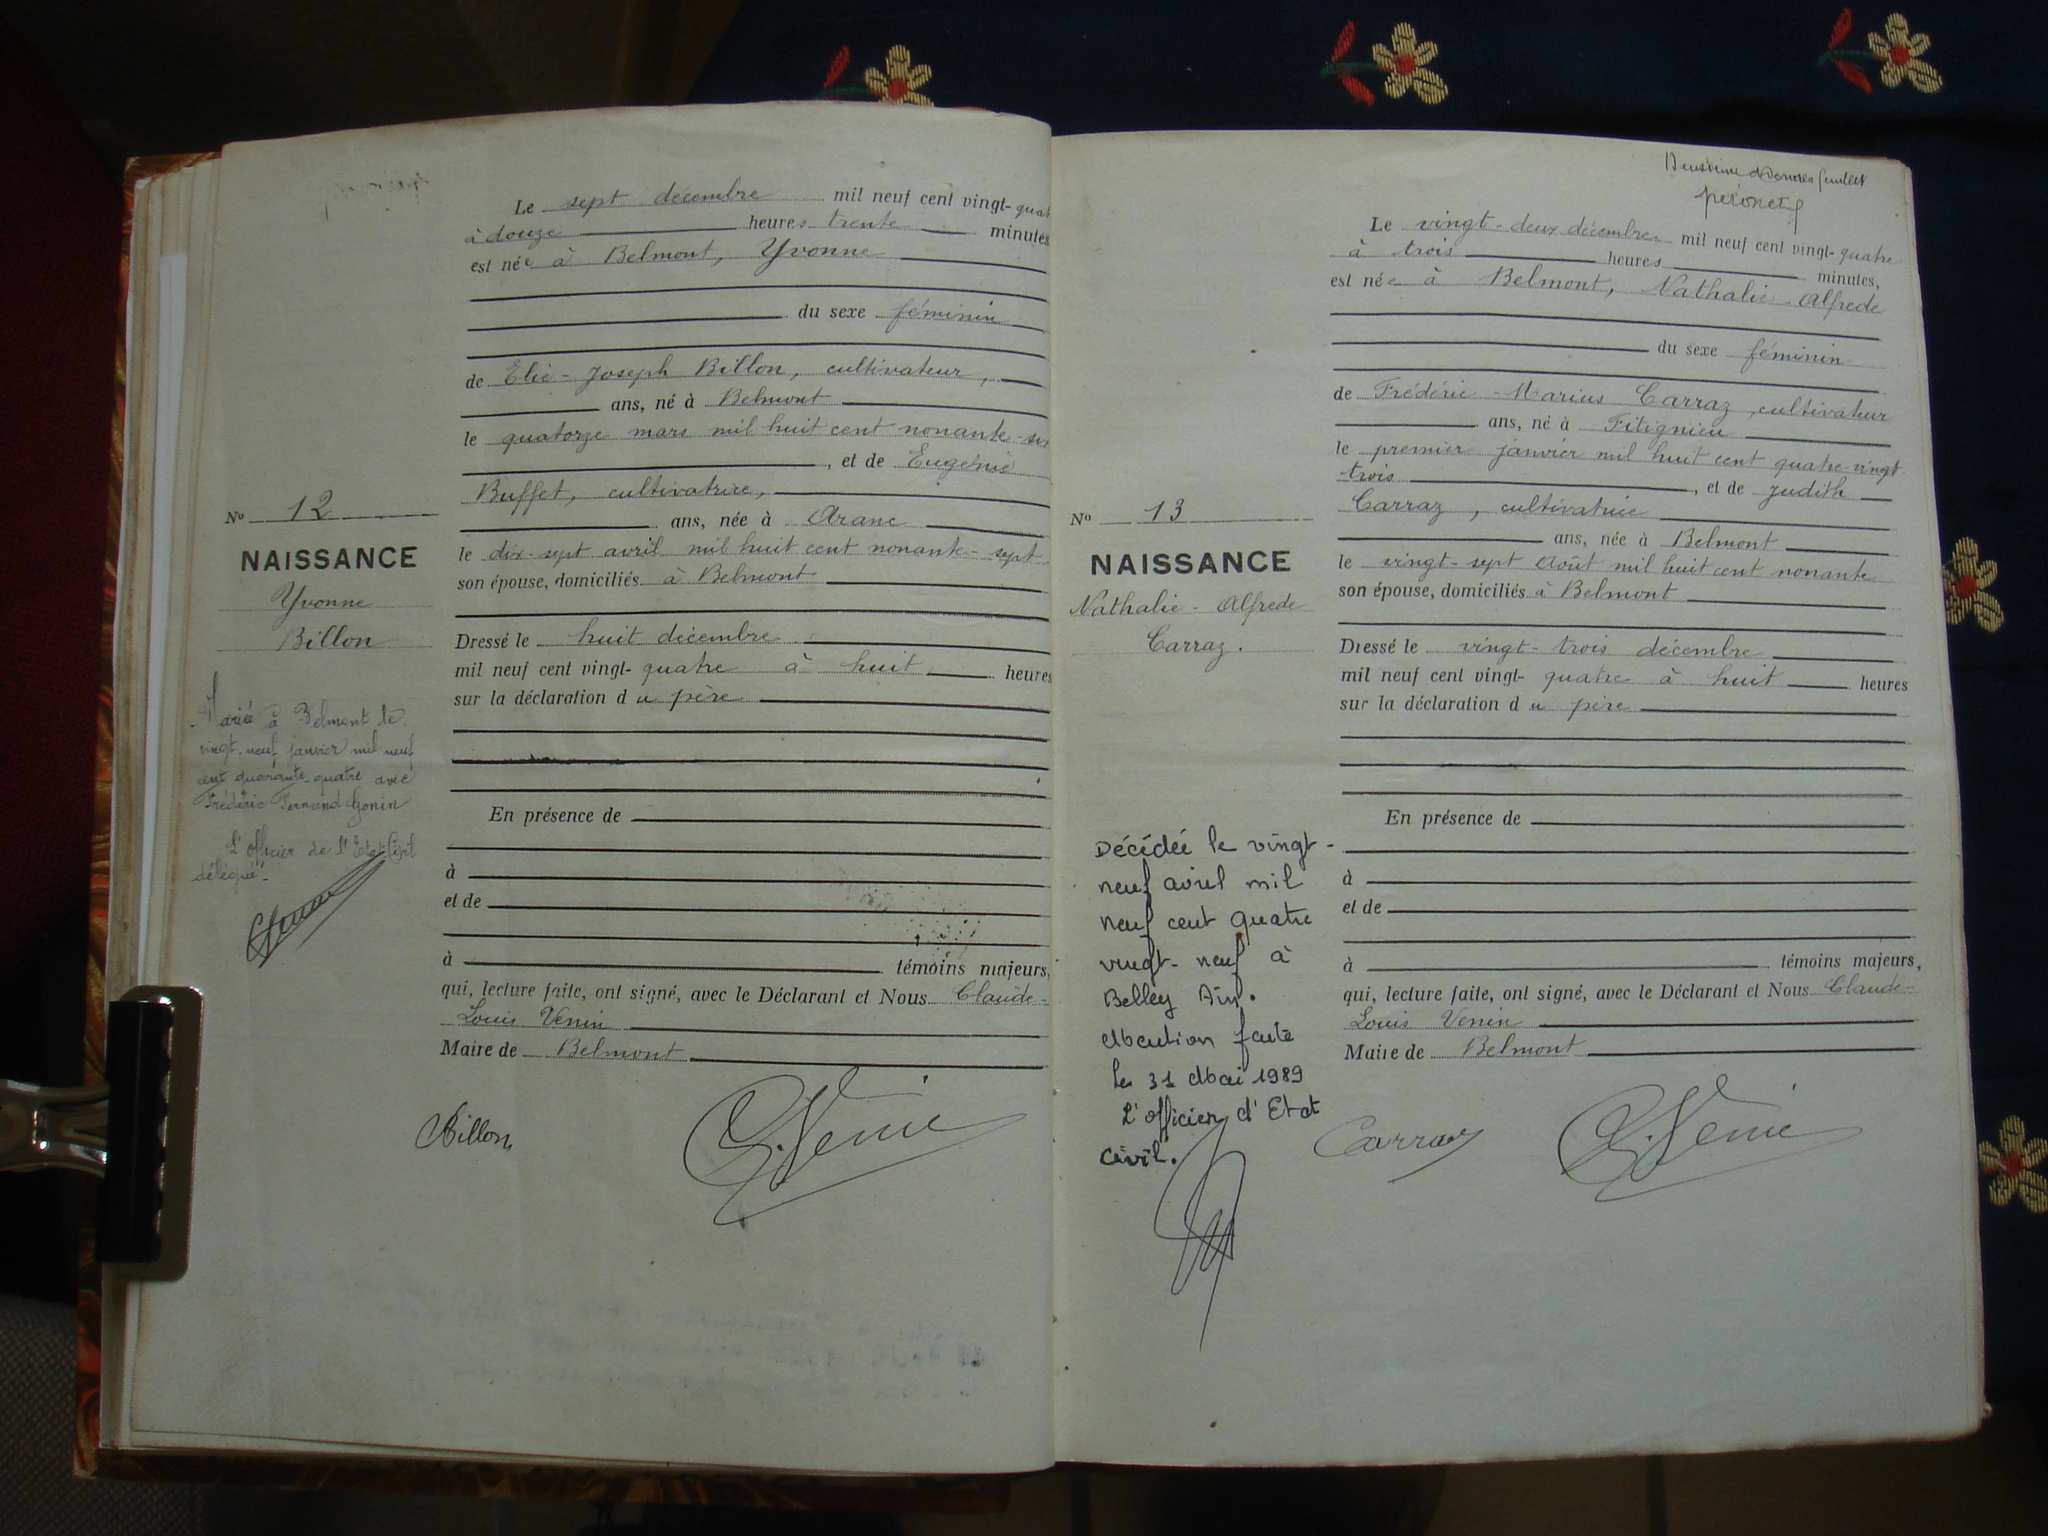 Le sept décembre mil neuf cent vingt-quat
à douze heures trente minutes
est née à Belmont, Yvonne
du sexe féminin
de Elie-Joseph Billon, cultivateur,
ans, né à Belmont
le quatorze mars mil huit cent nonante-six
, et de Eugénie
Buffet, cultivatrice,
ans, née à Aranc
le dix-sept avril mil huit cent nonante-sept
son épouse, domiciliés à Belmont
Dressé le huit décembre
mil neuf cent vingt-quatre à huit heures
sur la déclaration du père
En présence de
à
et de
à témoins majeurs,
qui, lecture faite, ont signé, avec le Déclarant et Nous Claude-
Louis Venin
Maire de Belmont
Billon
No 12
NAISSANCE
Yvonne
Billon
Mariée à Belmont le
vingt-neuf janvier mil neuf
cent quarante-quatre avec
Frédéric Fernand Gonin
L'officier de l'Etat Civil
délégué.
péronet
Le vingt-deux décembre mil neuf cent vingt-quatre
à trois heures minutes,
est née à Belmont, Nathalie-Alfrede
du sexe féminin
de Frédéric-Marius Carraz, cultivateur
ans, né à Fitignieu
le premier janvier mil huit cent quatre-vingt
trois, et de Judith
Carraz, cultivatrice
ans, née à Belmont
le vingt-sept Août mil huit cent nonante
son épouse, domiciliés à Belmont
Dressé le vingt-trois décembre
mil neuf cent vingt-quatre à huit heures
sur la déclaration du père
En présence de
à
et de
à témoins majeurs,
qui, lecture faite, ont signé, avec le Déclarant et Nous Claude-
Louis Venin
Maire de Belmont
Carraz
No 13
NAISSANCE
Nathalie-Alfrede
Carraz.
Décédée le vingt-
neuf avril mil
neuf cent quatre
vingt-neuf à
Belley Ain.
Mention faite
le 31 Mai 1989
L'officier d'Etat
civil.